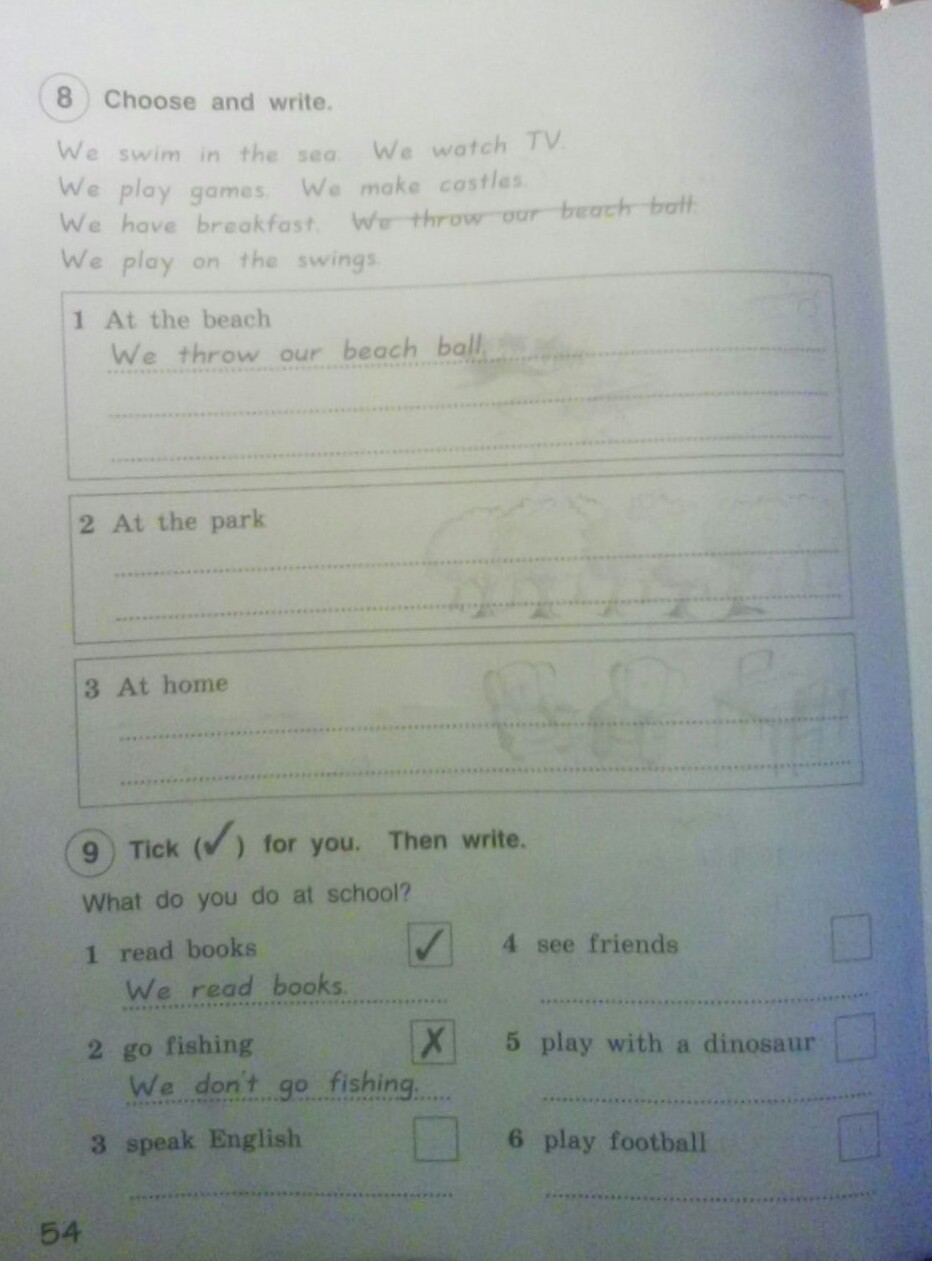 8 Choose and write.
We swim in the sea. We watch TV.
We play games. We make castles.
We have breakfast. We throw our beach ball.
We play on the swings.
1 At the beach
We throw our beach ball.
2 At the park
3 At home
9 Tick (✓) for you. Then write.
What do you do at school?
1 read books ✓
We read books.
2 go fishing ✗
We don't go fishing.
3 speak English
4 see friends
5 play with a dinosaur
6 play football
54